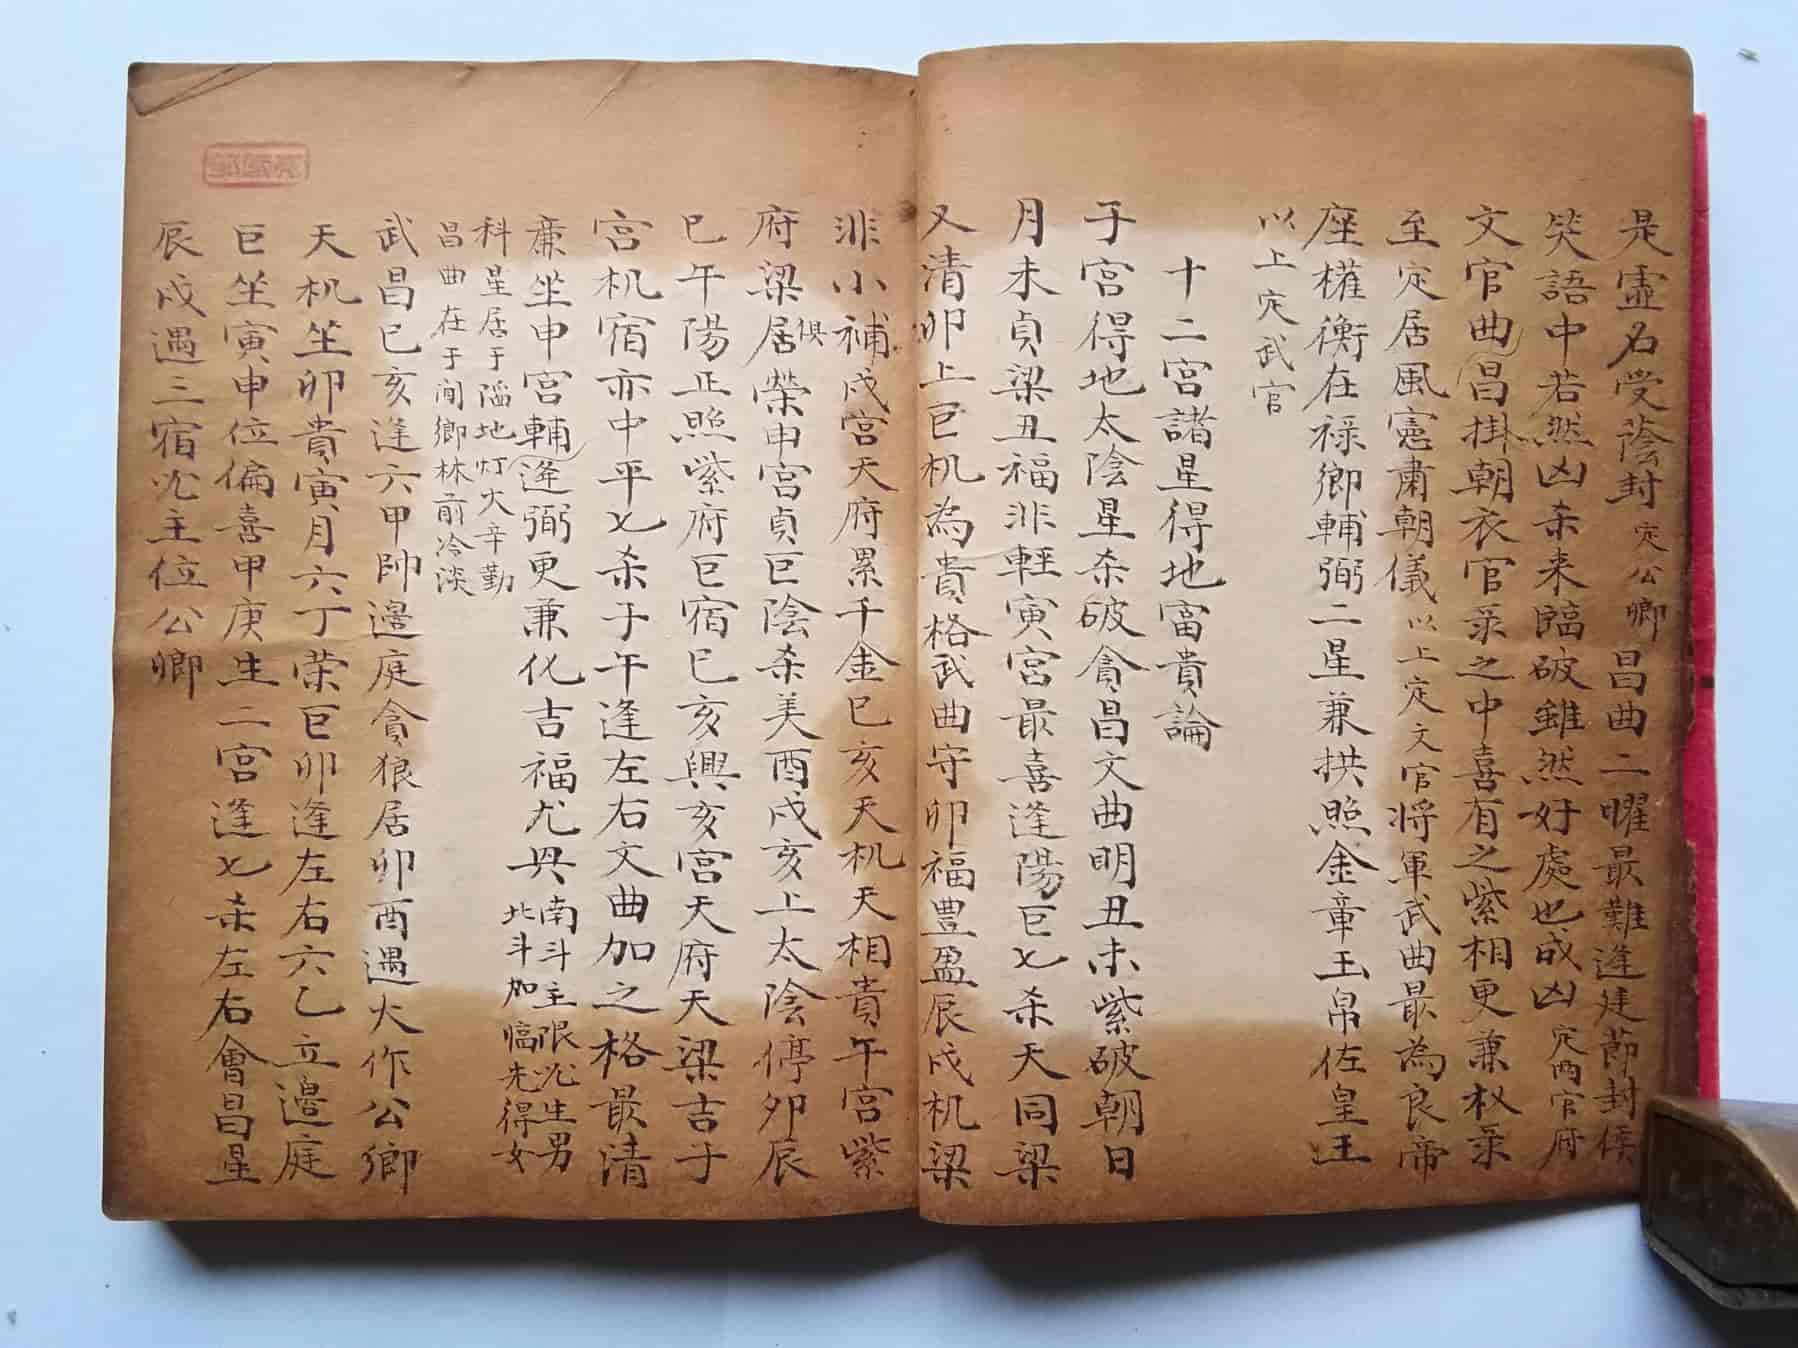 是虛名受蔭封 定公卿 昌曲二曜最難逢建節封侯
笑語中若然凶杀来臨破雖然好處也成凶 定两官府
文官曲昌掛朝衣官彔之中喜有之紫相更兼权彔
至定居風憲肅朝儀 以上定文官 将軍武曲最為良帝
座權衡在禄卿輔弼二星兼拱照金章玉帛佐皇王
以上定武官
十二宫諸星得地富貴論
子宫得地太陰星杀破貪昌文曲明丑未紫破朝日
月未貞梁丑福非輕寅宫最喜逢陽巨七杀天同梁
又清卯上巨机為貴格武曲守卯福豊盈辰戌机梁
非小補戌宫天府累千金巳亥天机天相貴午宫紫
府梁居俱榮申宫貞巨陰杀美酉戌亥上太陰停夘辰
巳午陽正照紫府巨宿巳亥興亥宫天府天梁吉子
宫机宿亦中平七杀子午逢左右文曲加之格最清
廉坐申宫輔逢弼更兼化吉福尤 南斗主限必生男
北斗加臨先得女
科星居于陷地灯火辛勤
昌曲在于闲鄉林前冷淡
武昌巳亥逢六甲帥邉庭貪狼居卯酉遇火作公卿
天机坐卯貴寅月六丁荣巨卯逢左右六乙立邉庭
巨坐寅申位偏喜甲庚生二宫逢七杀左右會昌星
辰戌遇三宿必主位公卿